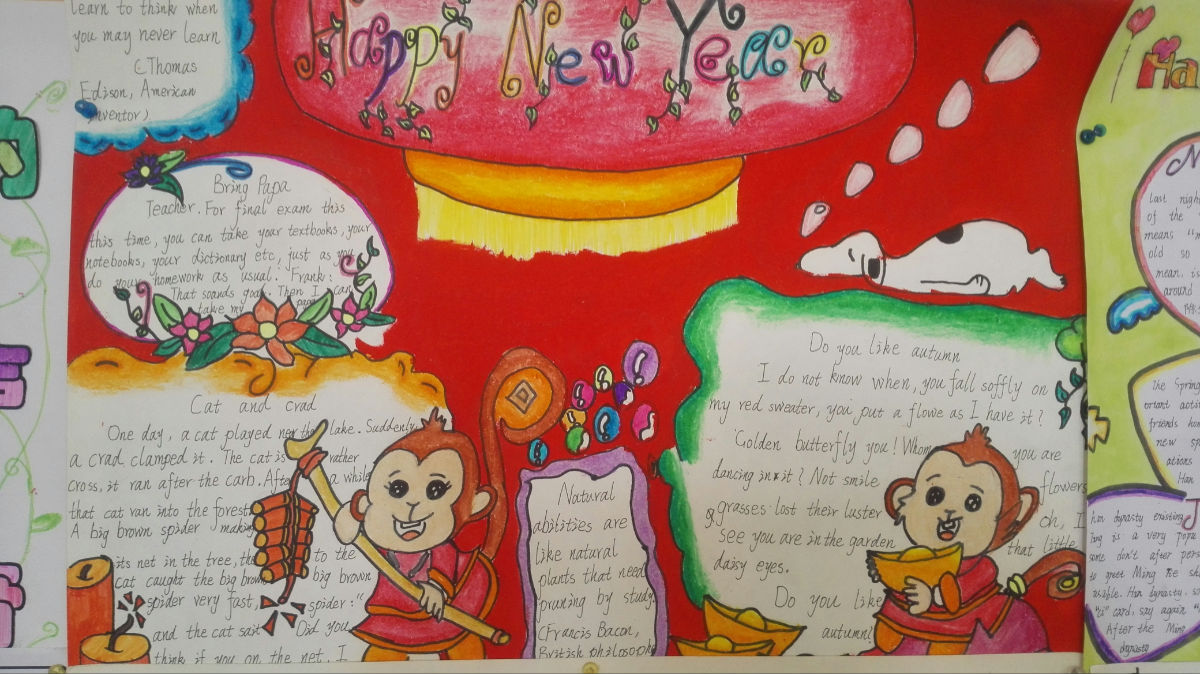 learn to think when
you may never learn
(Thomas
Edison, American
inventor)
Happy New Year
Bring Papa
Teacher. For final exam this
this time, you can take your textbooks, your
notebooks, your dictionary etc, just as you
do your homework as usual. Frank:
That soands goat. Then I can
take my papa
Cat and crad
"One day, a cat played near the lake. Suddenly
a crad clamped it. The cat is rather
cross, it ran after the carb. After a while
that cat ran into the forest
A big brown spider making
its net in the tree, the to the
cat caught the big brown big brown
spider very fast, spider:"
and the cat sait Did you
think if you on the net, I
Natural
abilities are
like natural
plants that need
pruning by study
(Francis Bacon,
British philosophe
Do you like autumn
I do not know when, you fall soffly on
my red sweater, you put a flowe as I have it?
Golden butterfly you! Whom you are
dancing in it? Not smile flowers
grasses lost their luster oh, I
see you are in the garden that little
daisy eyes.
Do you like
autumn!
Ha
last nigh
of the
means "n
old so
mean. is
around
the Sprin
ortant acti
friends han
new sp
ations
Han
han dynasty existing
ing is a very popu
some don't after per
to greet Ming
usible. Han dynasty,
card, say again
After the Ming
dynasty